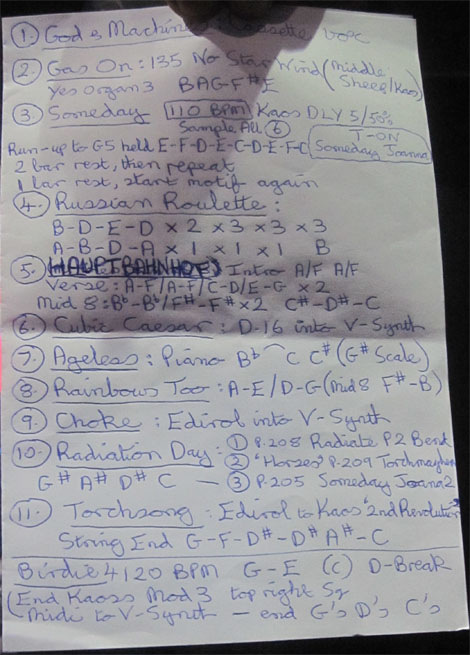 ① God & Machines: Cassette voc
② Gas On: 135 No Star Wind (Middle
Sheee/Kaos)
Yes Organ 3 BAG-F# E
③ Someday 110 BPM Kaos DLY 5/50%
Sample All ⑥ T-ON
Someday Joanna
Run-up to G5 held E-F-D-E-C-D-E-F-C
2 bar rest, then repeat
1 bar rest, start motif again
④ Russian Roulette:
B-D-E-D x 2 x 3 x 3 x 3
A-B-D-A x 1 x 1 x 1 B
⑤ (HAUPTBAHNHOF) Intro A/F A/F
Verse: A-F/A-F/C-D/E-G x2
Mid 8: Bb-Bb/F#-F# x2 C#-D#-C
⑥ Cubic Caesar: D-16 into V-Synth
⑦ Ageless: Piano Bb C C# (G# Scale)
⑧ Rainbows Too: A-E/D-G (Mid 8 F#-B)
⑨ Choke: Edirol into V-Synth
⑩ Radiation Day: ① P.208 Radiate P2 Bend
② "Horses" P.209
G# A# D# C — ③ P.205 Someday Joana2
⑪ Torchsong: Edirol to Kaos "2nd Revolution"
String End G-F-D#-D# A#-C
Birdie 4 120 BPM G-E (C) D-Break
(End Kaoss Mod 3 top right Sq
Midi to V-Synth — end G's D's C's